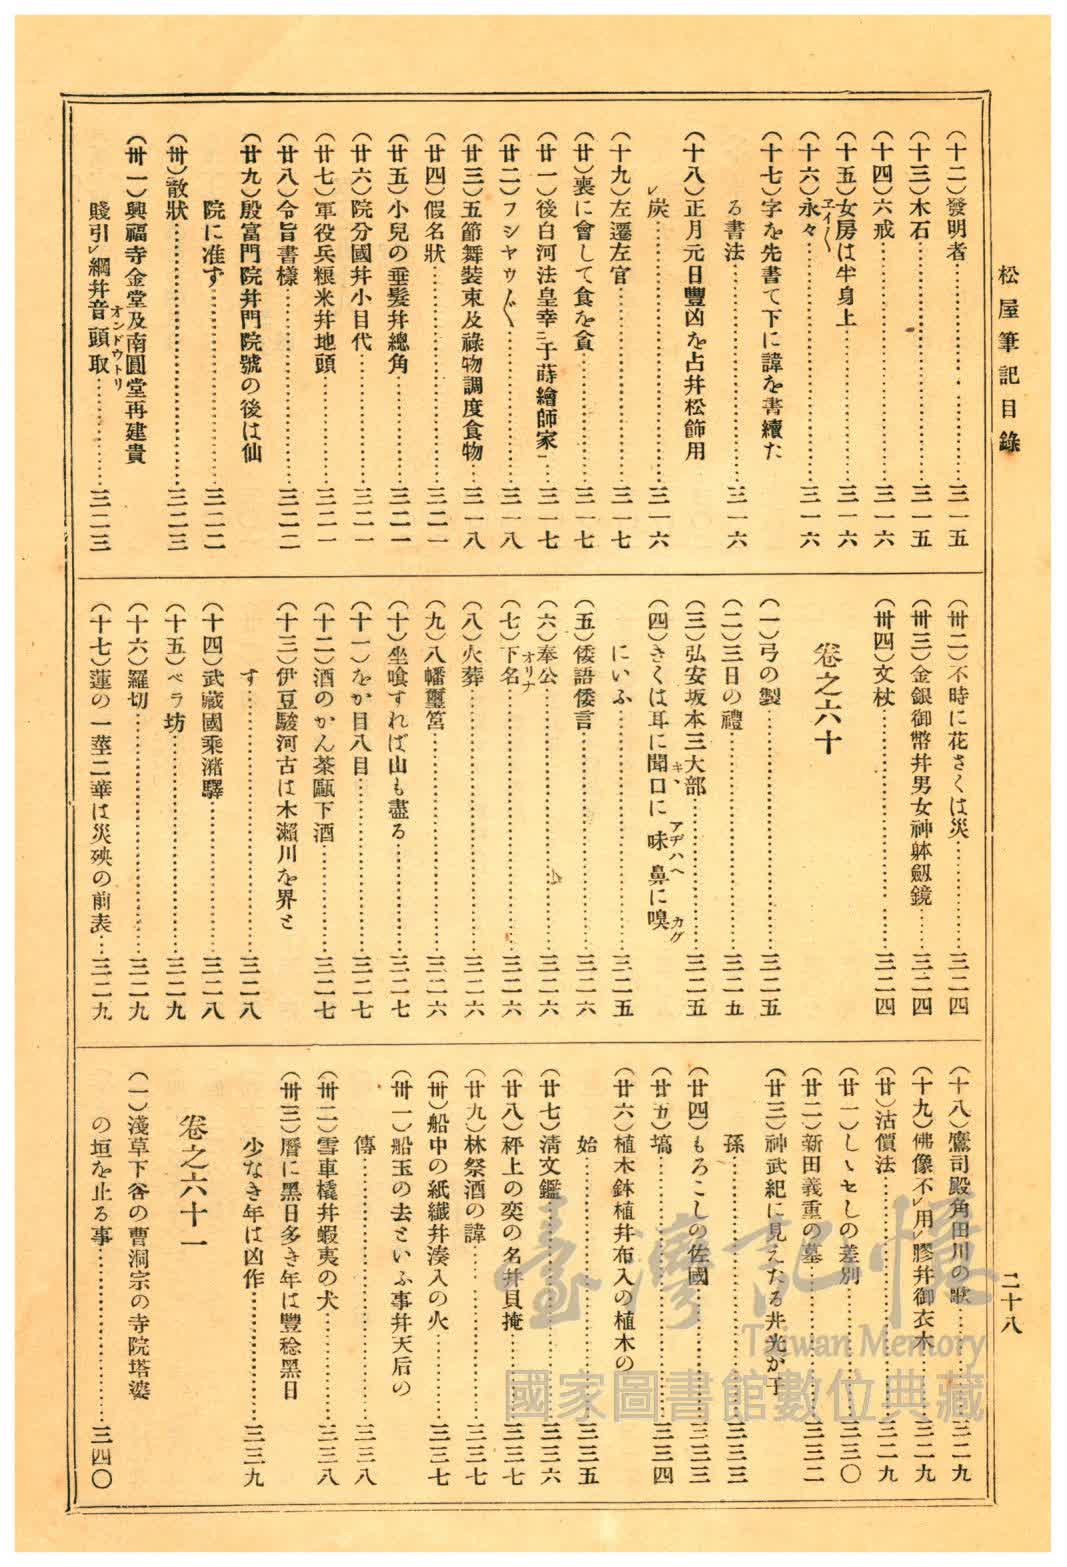 松屋筆記目錄
二十八
(十二)發明者……三一五
(十三)木石……三一五
(十四)六戒……三一六
(十五)女房は半身上……三一六
(十六)永々ヱイ〳〵……三一六
(十七)字を先書て下に諱を書續た
る書法……三一六
(十八)正月元日豐凶を占幷松飾用
レ炭……三一六
(十九)左遷左官……三一七
(廿)喪に會して食を貪……三一七
(廿一)後白河法皇幸三于蒔繪師家一……三一七
(廿二)フシヤウ〴〵……三一八
(廿三)五節舞裝束及祿物調度食物…三一八
(廿四)假名狀……三二一
(廿五)小兒の垂髮幷總角……三二一
(廿六)院分國幷小目代……三二一
(廿七)軍役兵粮米幷地頭……三二一
(廿八)令旨書樣……三二二
(廿九)殷富門院幷門院號の後は仙
院に准ず……三二二
(卅)散狀……三二三
(卅一)興福寺金堂及南圓堂再建貴
賤引レ綱幷音頭取オンドウトリ……三二三
(卅二)不時に花さくは災……三二四
(卅三)金銀御幣幷男女神躰劔鏡……三二四
(卅四)文杖……三二四
卷之六十
(一)弓の製……三二五
(二)三日の禮……三二五
(三)弘安坂本三大部……三二五
(四)さくは耳に聞キヽ口に味アヂハヘ鼻に嗅カグ
にいふ……三二五
(五)倭語倭言……三二六
(六)奉公……三二六
(七)下名オリナ……三二六
(八)火葬……三二六
(九)八幡璽筥……三二六
(十)坐喰すれば山も盡る……三二七
(十一)をか目八目……三二七
(十二)酒のかん茶甌下酒……三二七
(十三)伊豆駿河古は木瀨川を界と
す……三二八
(十四)武藏國乘瀦驛……三二八
(十五)ベラ坊……三二九
(十六)羅切……三二九
(十七)蓮の一莖二華は災殃の前表…三二九
(十八)鷹司殿角田川の歌……三二九
(十九)佛像不レ用レ膠幷御衣木……三二九
(廿)沽價法……三二九
(廿一)しゝせしの差別……三三〇
(廿二)新田義重の墓……三三二
(廿三)神武紀に見えたる井光が子
孫……三三三
(廿四)もろこしの佐國……三三三
(廿五)塙……三三四
(廿六)植木鉢植幷布入の植木の
始……三三五
(廿七)淸文鑑……三三六
(廿八)秤上の奕の名幷貝掩……三三七
(廿九)林祭酒の諱……三三七
(卅)船中の紙織幷湊入の火……三三七
(卅一)船玉の去といふ事幷天后の
傳……三三八
(卅二)雪車橇幷蝦夷の犬……三三八
(卅三)曆に黑日多き年は豐稔黑日
少なき年は凶作……三三九
卷之六十一
(一)淺草下谷の曹洞宗の寺院塔婆
の垣を止る事……三四〇
臺灣記憶
Taiwan Memory
國家圖書館數位典藏